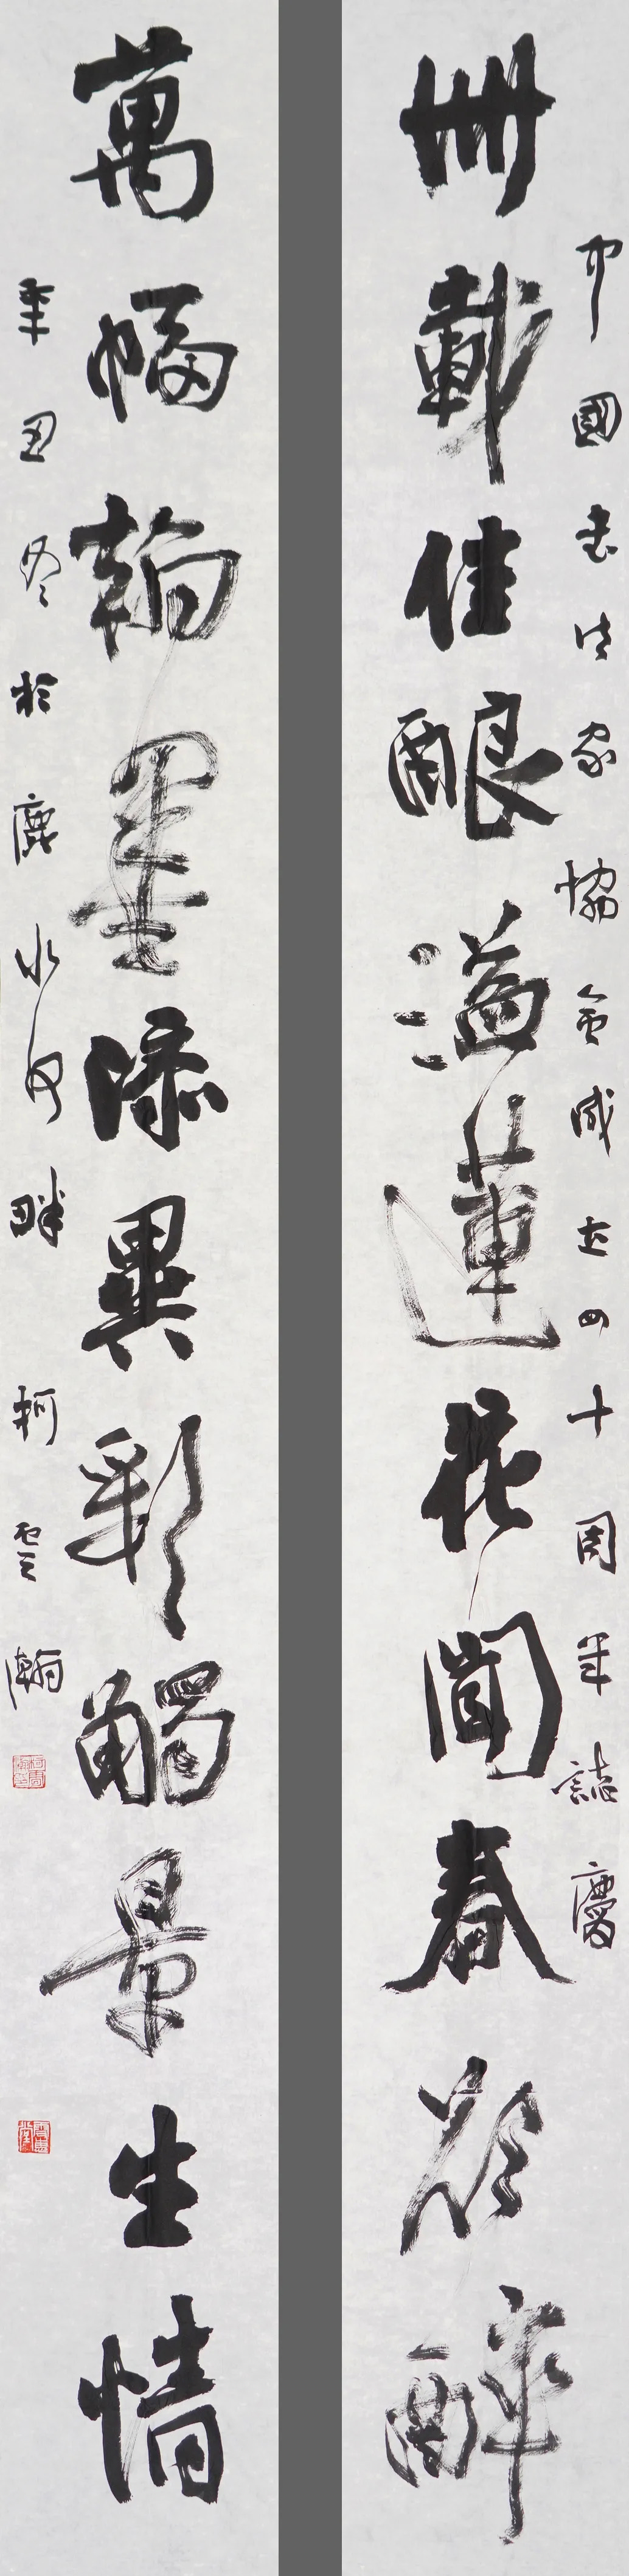 中國書法家協會成立四十周年誌慶
卌載佳酿溢蓮花聞春欲醉
萬幅翰墨添異彩觸景生情
辛丑冬於鹿水河畔 柯雲瀚